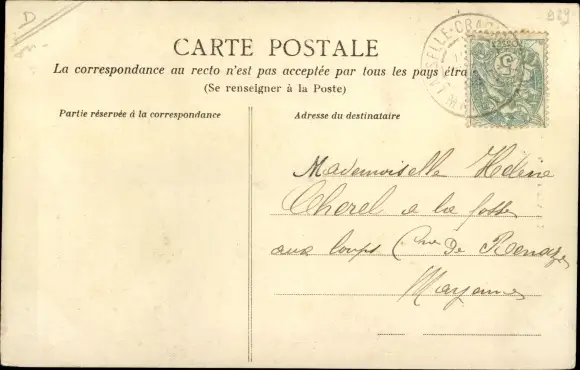 D
B29
LA SELLE-CRAO
CARTE POSTALE
La correspondance au recto n'est pas acceptée par tous les pays étra
(Se renseigner à la Poste)
Partie réservée à la correspondance
Adresse du destinataire
Mademoiselle Hélène
Cherel a la fosse
aux loups Cne De Renazé
Mayenne